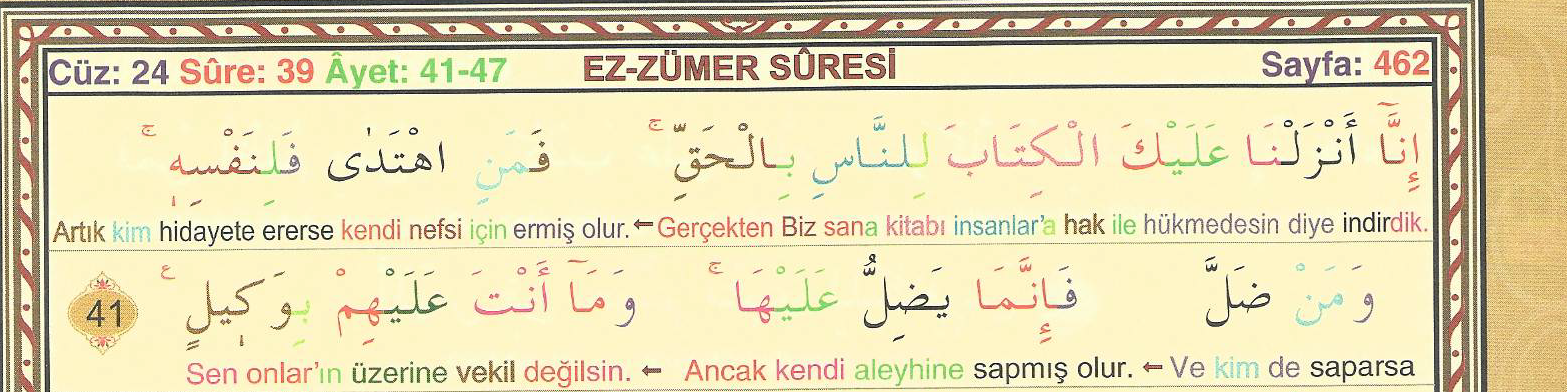 Cüz: 24 Sûre: 39 Âyet: 41-47 EZ-ZÜMER SÛRESİ Sayfa: 462
إِنَّٓا أَنْزَلْنَا عَلَيْكَ الْكِتَابَ لِلنَّاسِ بِالْحَقِّ ۚ فَمَنِ اهْتَدٰى فَلِنَفْسِهٖ ۚ
Artık kim hidayete ererse kendi nefsi için ermiş olur.←Gerçekten Biz sana kitabı insanlar'a hak ile hükmedesin diye indirdik.
وَمَنْ ضَلَّ فَإِنَّمَا يَضِلُّ عَلَيْهَا ۚ وَمَٓا أَنْتَ عَلَيْهِمْ بِوَكٖيلٍ ع 41
Sen onlar'ın üzerine vekil değilsin. ← Ancak kendi aleyhine sapmış olur. ← Ve kim de saparsa